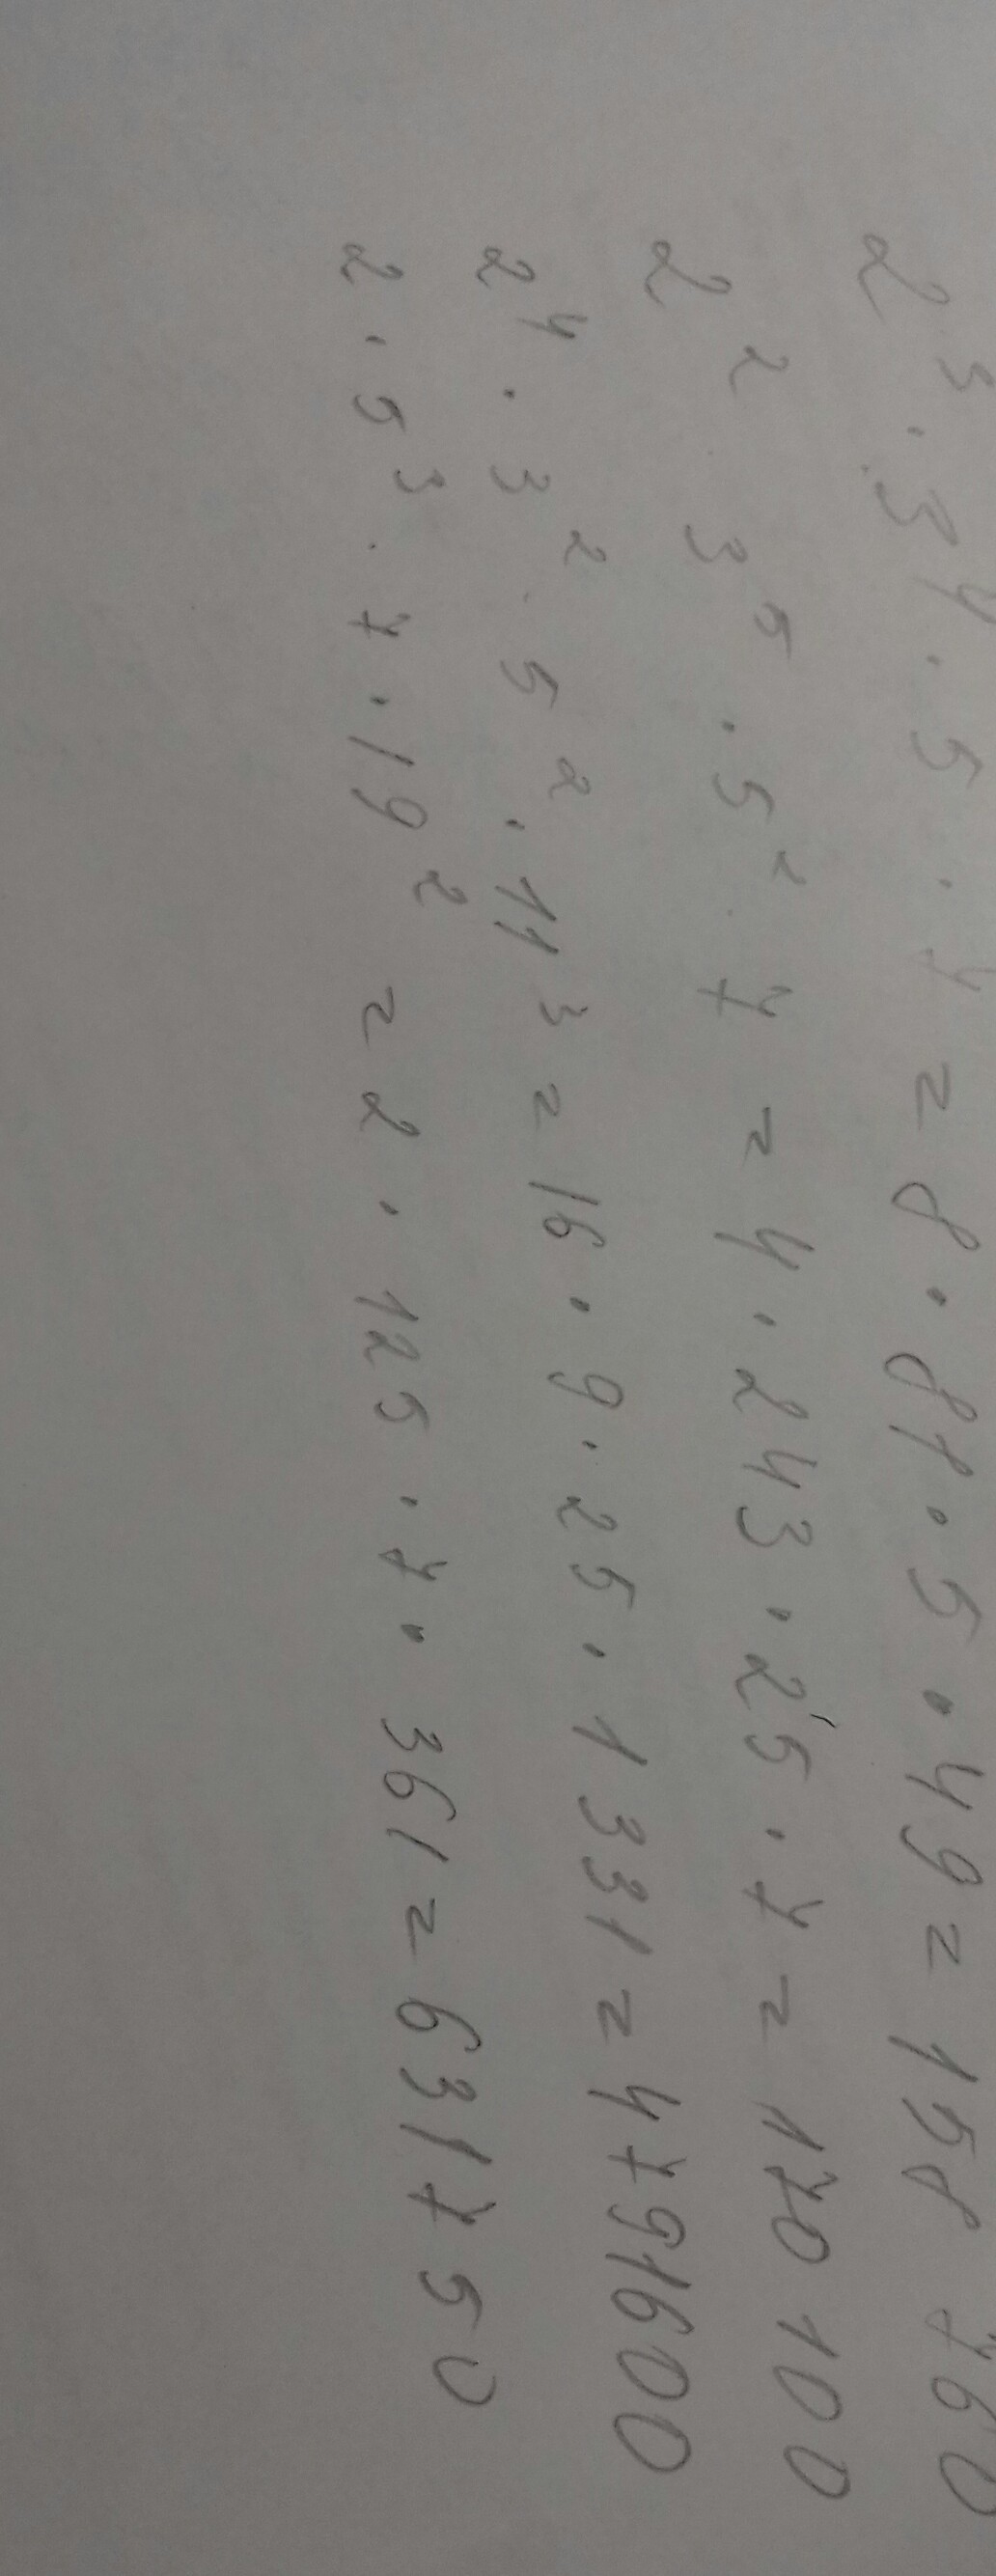 2³ · 3⁴ · 5 · 7 = 8 · 81 · 5 · 49 = 158760
2² · 3⁵ · 5² · 7 = 4 · 243 · 25 · 7 = 170100
2⁴ · 3² · 5² · 11³ = 16 · 9 · 25 · 1331 = 4791600
2 · 5³ · 7 · 19² = 2 · 125 · 7 · 361 = 631750